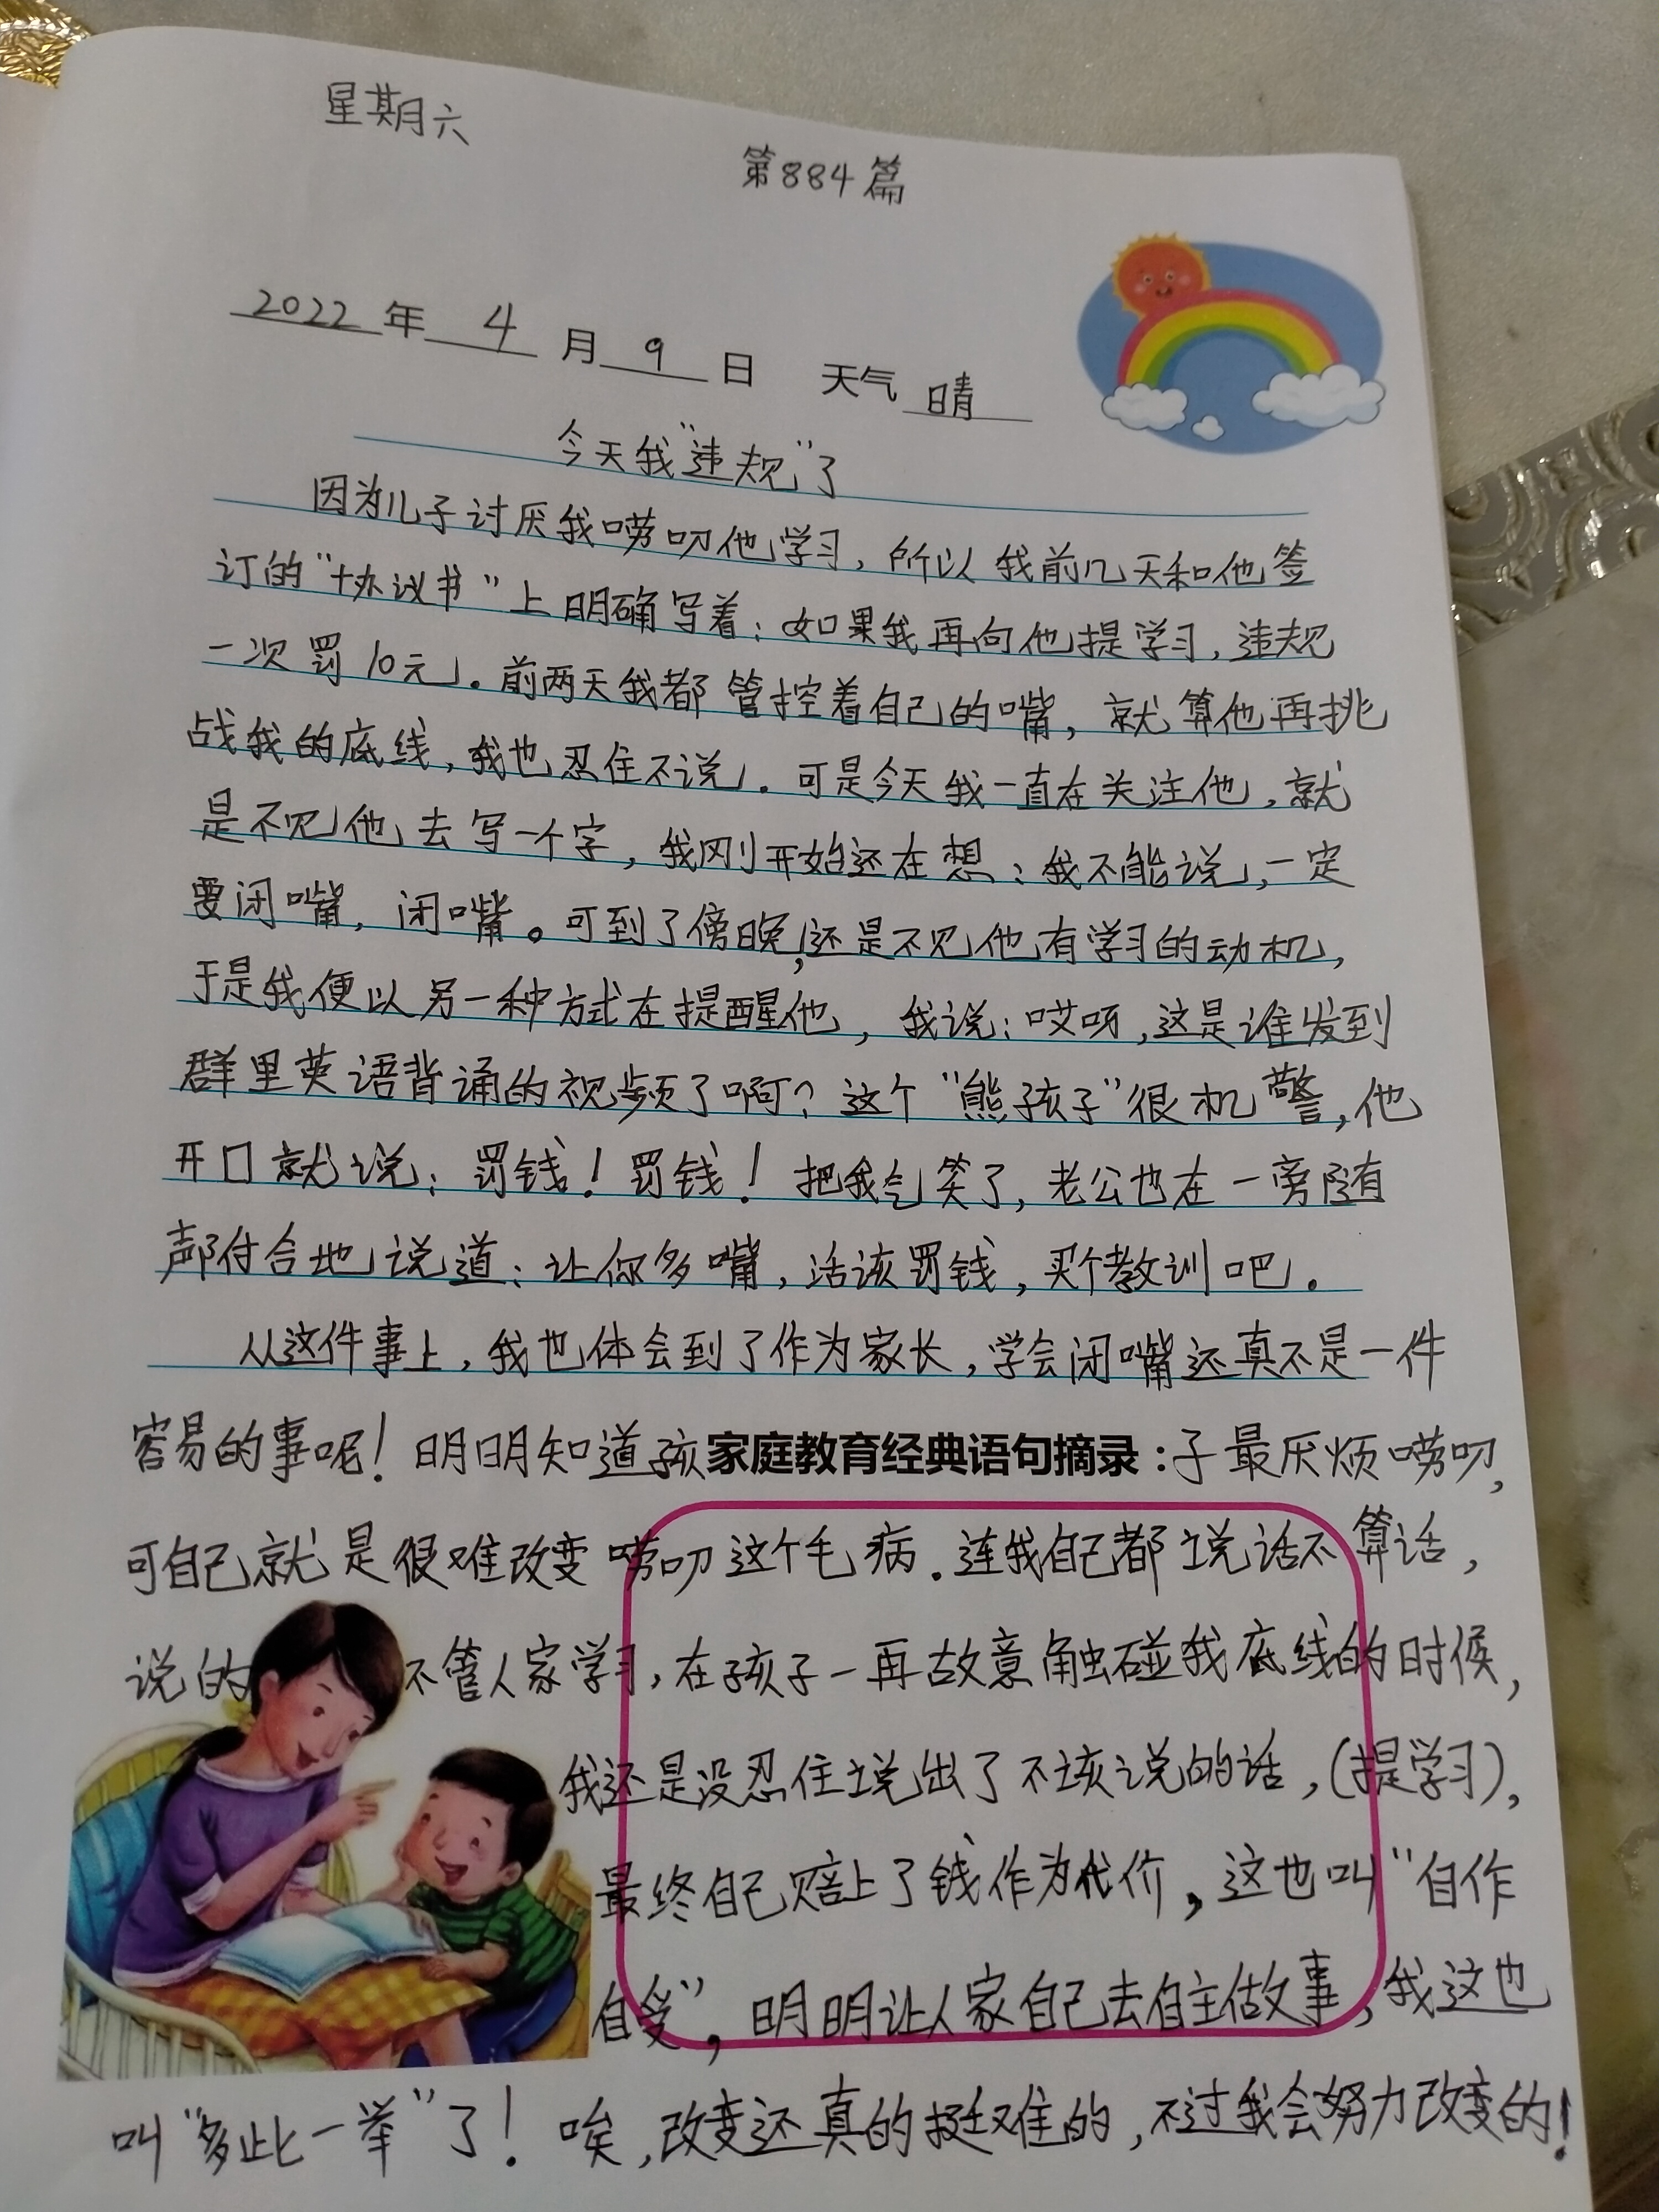 星期六
第884篇
2022年4月9日 天气晴
今天我“违规”了
因为儿子讨厌我唠叨他学习，所以我前几天和他签
订的“协议书”上明确写着：如果我再向他提学习，违规
一次罚10元。前两天我都管控着自己的嘴，就算他再挑
战我的底线，我也忍住不说。可是今天我一直在关注他，就
是不见他去写一个字，我刚开始还在想：我不能说，一定
要闭嘴，闭嘴。可到了傍晚，还是不见他有学习的动机，
于是我便以另一种方式在提醒他，我说：哎呀，这是谁发到
群里英语背诵的视频了啊？这个“熊孩子”很机警，他
开口就说：罚钱！罚钱！把我气笑了，老公也在一旁随
声附合地说道：让你多嘴，活该罚钱，买个教训吧。
从这件事上，我也体会到了作为家长，学会闭嘴还真不是一件
容易的事呢！明明知道孩家庭教育经典语句摘录：子最厌烦唠叨，
可自己就是很难改变唠叨这个毛病。连我自己都说话不算话，
说的不管人家学习，在孩子一再故意触碰我底线的时候，
我还是没忍住说出了不该说的话，（提学习），
最终自己赔上了钱作为代价，这也叫“自作
自受”，明明让人家自己去自主做事，我这也
叫“多此一举”了！唉，改变还真的挺难的，不过我会努力改变的！